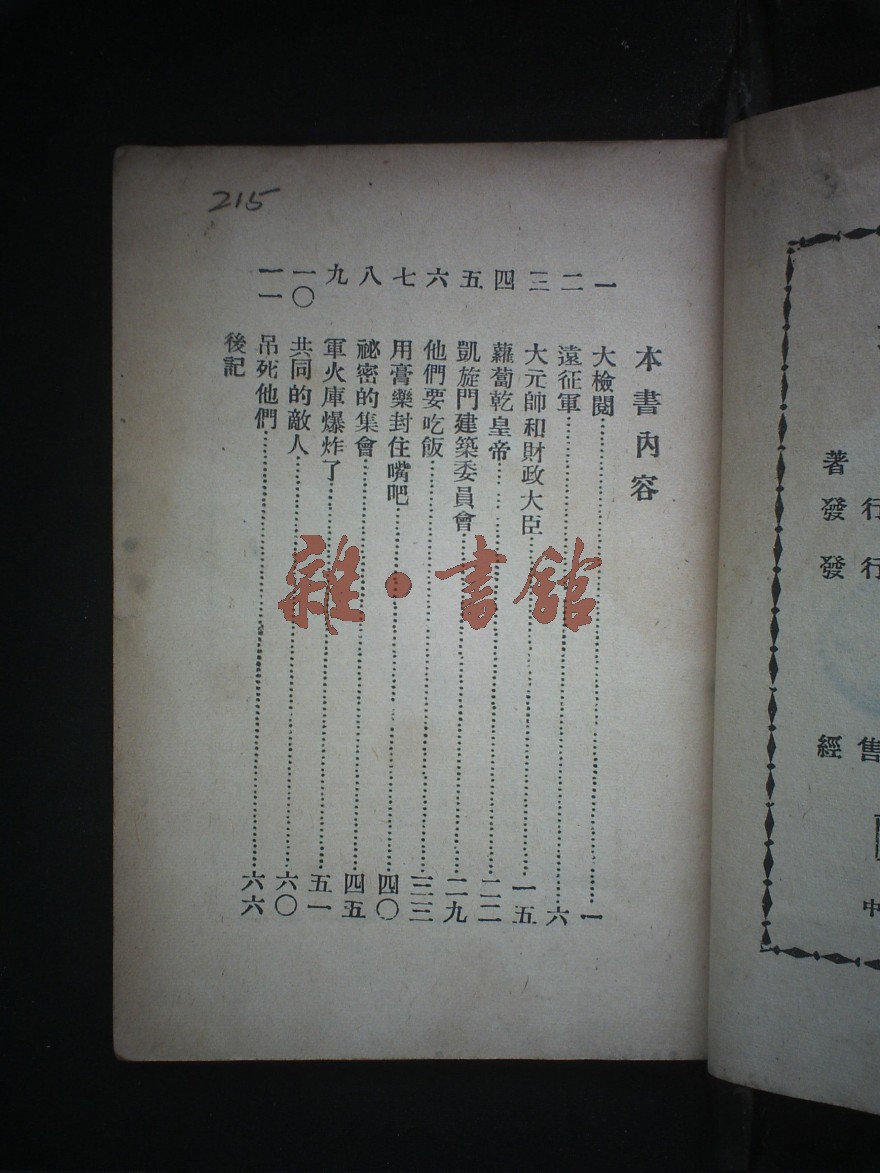 215
本書內容
一 大檢閱 一
二 遠征軍 六
三 大元帥和財政大臣 一五
四 蘿蔔乾皇帝 二二
五 凱旋門建築委員會 二九
六 他們要吃飯 三三
七 用膏藥封住嘴吧 四〇
八 祕密的集會 四五
九 軍火庫爆炸了 五一
一〇 共同的敵人 六〇
一一 吊死他們 六六
後記
雜·書館
著
發行
發行
經售
中